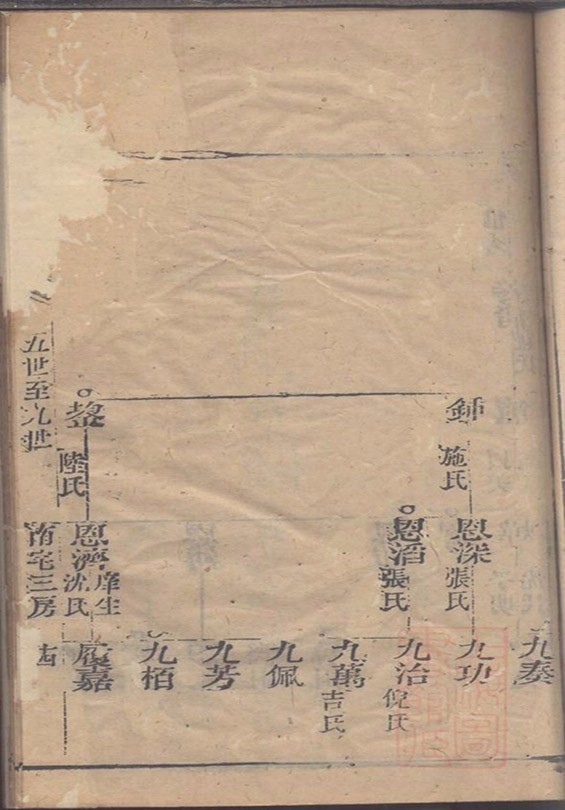 鍾
施氏
恩深
張氏
恩滔
張氏
陸氏
恩濟
庠生
沈氏
九奏
九功
九治
倪氏
九萬
吉氏
九佩
九芳
九栢
應嘉
五世至九世
南宅三房